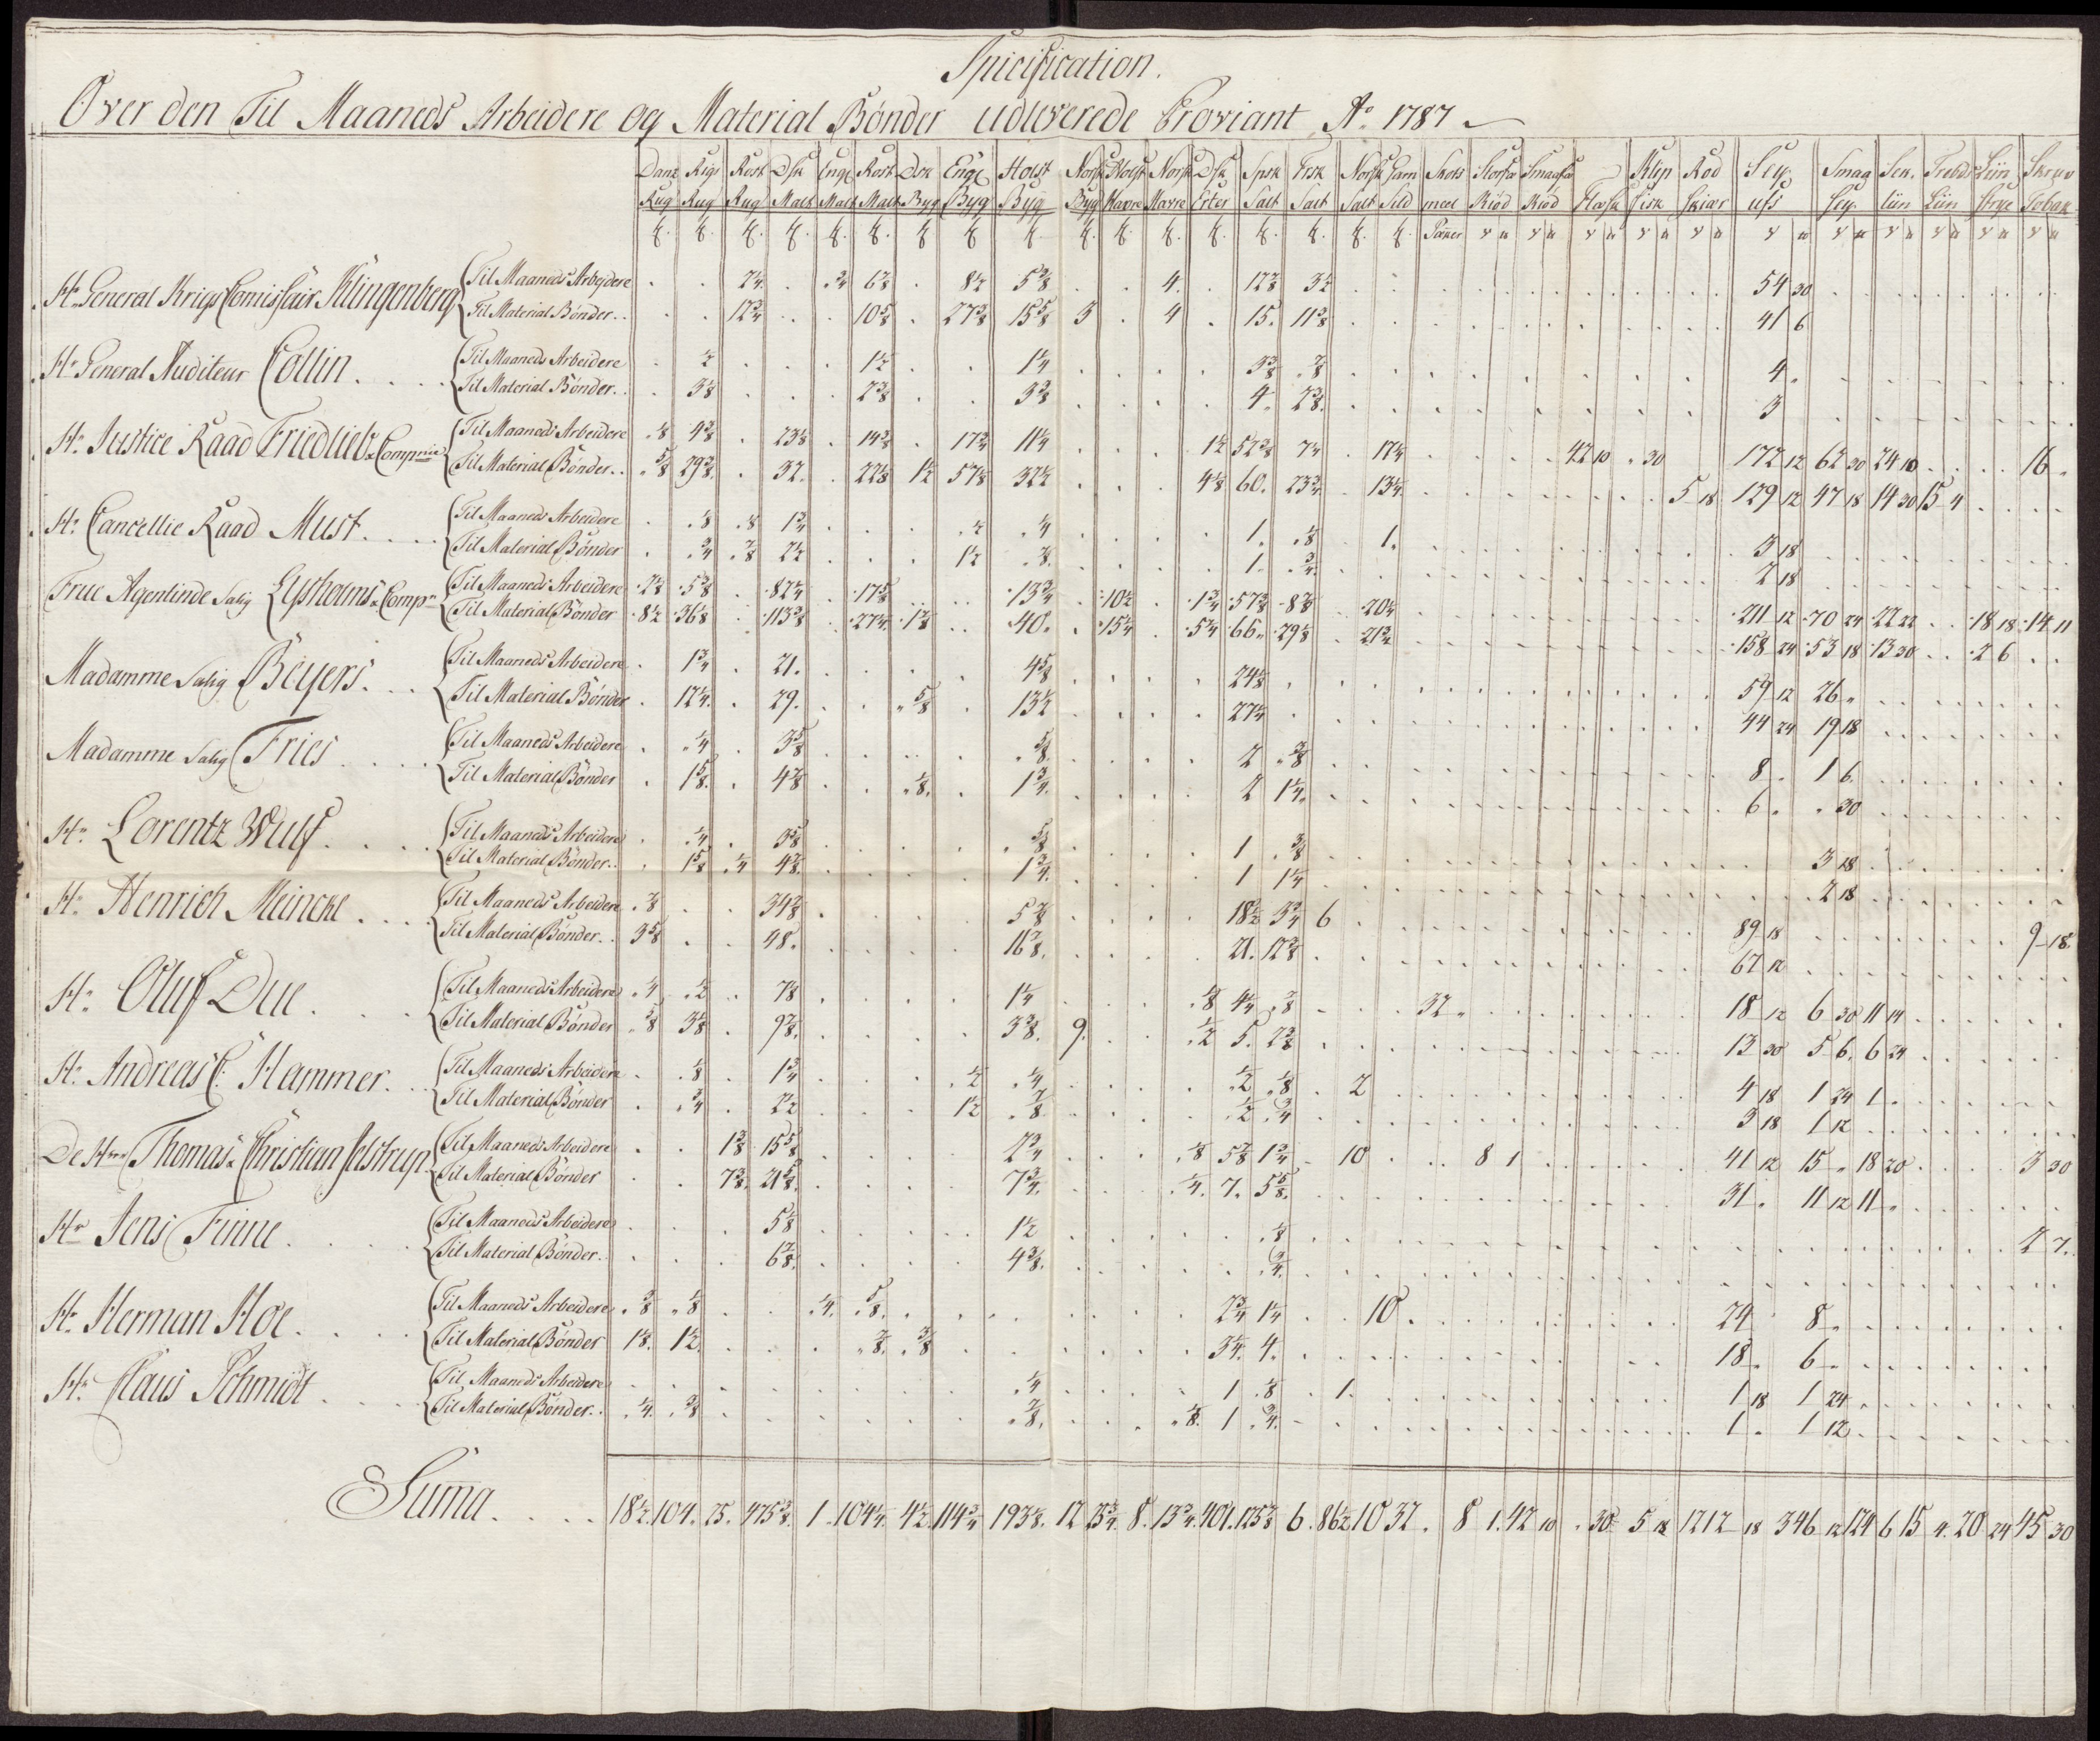 Spicification.
Over den Til Maaneds Arbeidere og Material Bönder udleverede Proviant Ao 1787
Danz Rigs Rost Dsk Engl Rost Dsk Engl Holst Norsk Holst Norsk Dsk Spsk Frsk Norsk Skots Storfæ Smaafæ Klip Rød Sey Smaag Sen. Liin
Rug Rug Rug Malt Malt Malt Byg Byg Byg Byg Havre Havre Erter Salt Salt Salt Sild meel Kiöd Kiöd Flæsk Fisk Skiær ufs Sey. liin Liin Tobak
Hr. General Krigs Comissair Klingenberg
Til Maaneds Arbejdere 2¼ ¾ 8½ 5⅜ 4. 3½ 54 30
Til Material Bønder.. 12¾ 10⅝ 27⅜ 15⅝ 3 4 15. 11⅜ 41 6
Hr General Auditeur Collin
Til Maaneds Arbeidere ½ 1½ 1¼ 3⅜ ⅞ 4.
Til Material Bønder. 3⅛ 2⅜ 3⅜ 4. 2⅜ 3
Hr. Justice Raad Friedlieb & Compnie
Til Maaneds Arbeidere ⅛ 4⅜ 23⅛ 14⅜ 17¾ 11¼ 1½ 52⅜ 7¼ 17¼ 42 10 . 30 172 12 62 30 24 10 16.
Til Material Bønder.. ⅝ 29⅜ 32. 22⅛ 1½ 57⅛ 32½ 4⅛ 60. 23¾ 13¼ 5 18 129 12 47 18 14 30 15 4
Hr. Cancellie Raad Must
Til Maaneds Arbeidere ⅛ ⅛ 1¾ ½ ¼ 1. ⅛ 1. 3 18
Til Material Bønder ¾ ⅞ 2½ 1½ ⅞ 1. ¾ 2 18
Frue Agentinde Salig Lysholms & Compn
Til Maaneds Arbeidere 2½ 5⅜ 82¼ 17⅝ 13¾ 10½ 1¾ 57⅜ 8⅞ 20¼ 211 12 70 24 22 22 18 18 14 11
Til Material Bønder 8½ 36⅛ 113⅜ 27¼ 1⅞ 40. 15¼ 5¼ 66. 29⅛ 21¾ 158 24 53 18 13 30 2 6
Madamme Salig Beyers
Til Maaneds Arbeidere 1¾ 21. 4⅝ 24⅛ 59 12 26.
Til Material Bønder 12¼ 29. ⅝ 13½ 27¼ 44 24 19 18
Madamme Salig Fries
Til Maaneds Arbeidere ¼ 3⅝ ⅝ 2 ⅜ 8. 1 6.
Til Material Bønder 1⅝ 4⅞ ⅛ 1¾ 2 1¼ 6. . 30
Hr. Lorentz Wulf
Til Maaneds Arbeidere ¼ 3⅝ ⅝ 1 ⅜ 3 18
Til Material Bønder.. 1⅝ ¼ 4⅞ 1¾ 1 1¼ 2 18
Hr. Henrich Meincke
Til Maaneds Arbeidere ⅞ 34⅜ 5⅞ 18½ 3¾ 6 89 18 9 18.
Til Material Bønder. 3⅝ 48. 16⅞ 21. 12⅜ 67 12
Hr. Oluf Due
Til Maaneds Arbeidere ¼ ½ 7⅛ 1¼ ⅛ 4¼ ⅞ 32. 18 12 6 30 11 14
Til Material Bønder ⅝ 3⅛ 9⅞ 3⅜ 9. ½ 5. 2⅜ 13 30 5 6. 6 24
Hr. Andreas C: Hammer
Til Maaneds Arbeidere ⅛ 1¾ ½ ¼ ½ ⅛ 2 4 18 1 24 1.
Til Material Bønder ¾ 2½ 1½ ⅞ ½ ¾ 3 18 1 12
De Hrrr Thomas & Christian Jelstrup
Til Maaneds Arbeidere 1⅜ 15⅝ 2¾ ⅛ 5⅞ 1¾ 10 8 1 41 12 15 . 18 20 3 30
Til Material Bønder 7⅜ 21⅝ 7¾ ¼ 7. 5⅝ 31. 11 12 11.
Hr Jens Finne
Til Maaneds Arbeidere 5⅛ 1½ ⅛ 2 7.
Til Material Bønder.. 6⅞ 4⅜ ¾
Hr. Herman Hoe
Til Maaneds Arbeidere ⅜ ⅛ ¼ ⅝ 2¾ 1¼ 10 24 8.
Til Material Bønder 1⅛ 1½ ⅞ ⅜ 3¼ 4. 18. 6.
Hr. Claus Schmidt
Til Maaneds Arbeidere ¼ 1 ⅛ 1. 1 18 1 24
Til Material Bønder.. ¼ ⅜ ⅞ ⅛ 1 ¾ 1. 1 12
Suma 18½ 104. 25. 475⅜ 1 104¼ 4½ 114¾ 193⅛ 12 25¾ 8. 13¾ 401. 125⅜ 6. 86½ 10 32. 8 1. 42 10 . 30 5 18 1212 18 346 12 124 6 15 4. 20 24 45 30